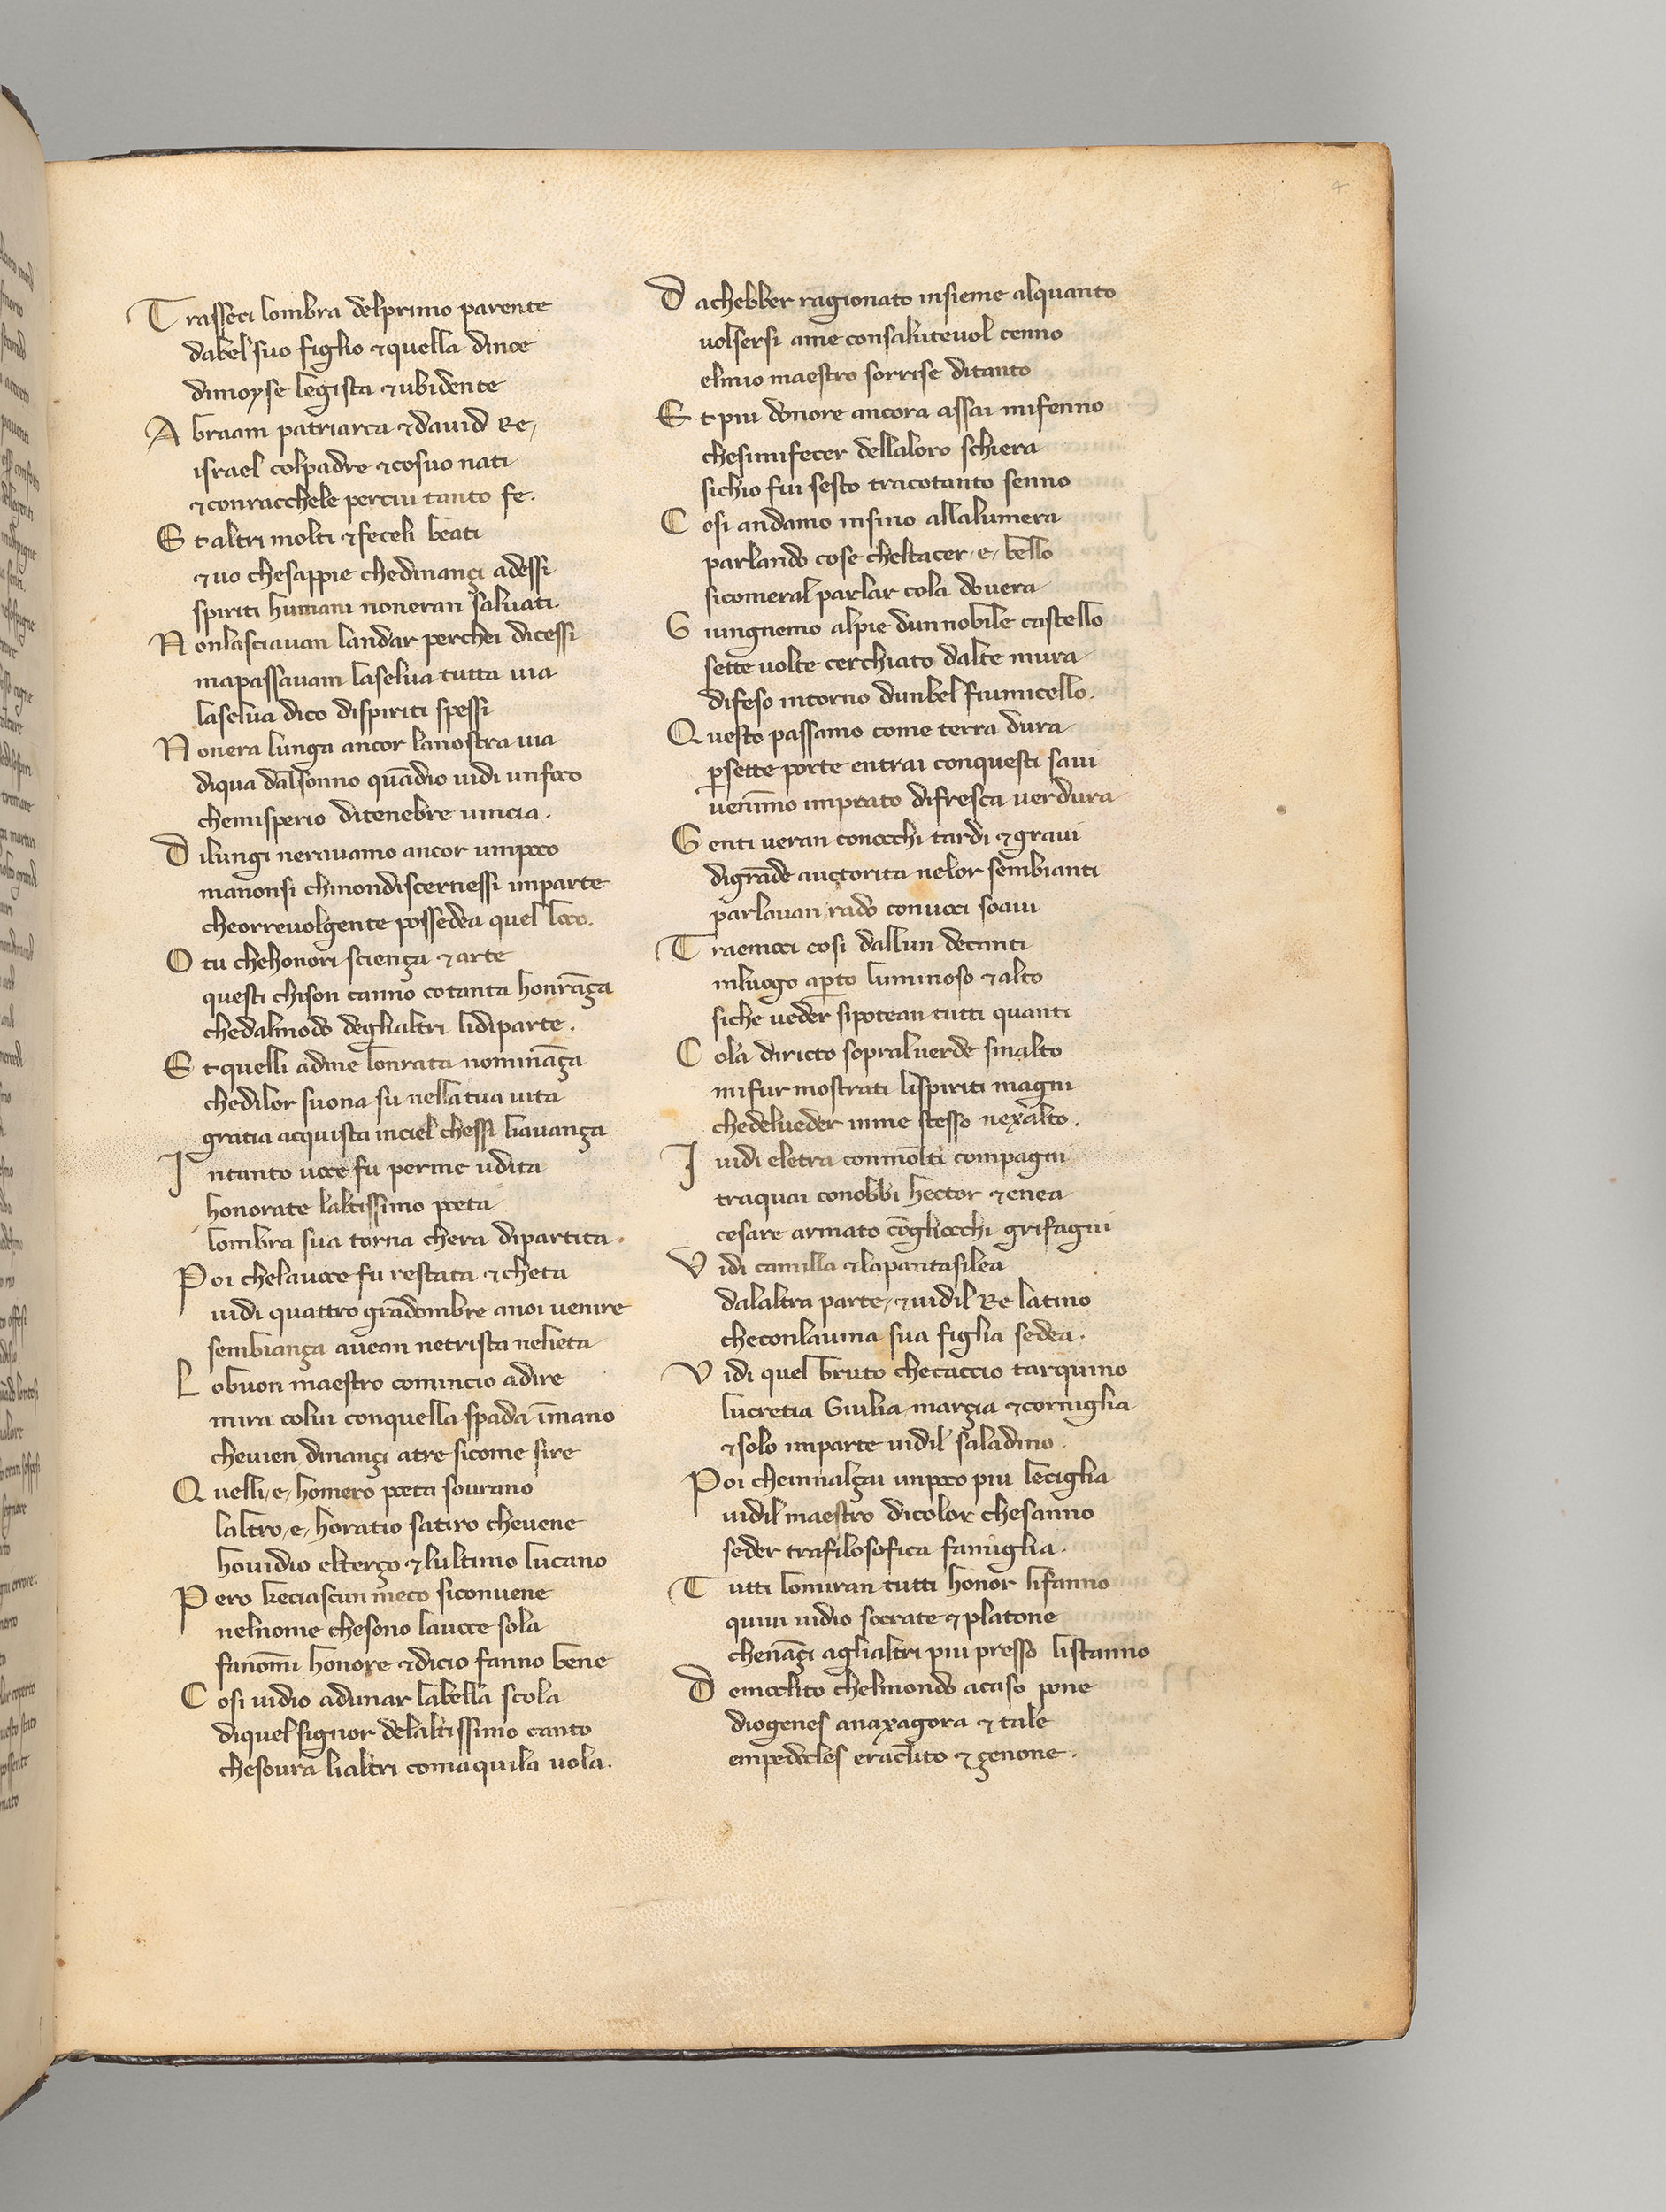 4
Trasseci lombra delprimo parente
dabel suo figlio ⁊quella dinoe
dimoyse legista ⁊ubidente
Abraam patriarca ⁊dauid Re,
israel colpadre ⁊cosuo nati
⁊conracchele percui tanto fe.
Et altri molti ⁊feceli beati
⁊uo chesappie chedinançi adessi
spiriti humani noneran saluati.
Nonlasciauan landar perchei dicessi
mapassauam laselua tutta uia
laselua dico dispiriti spessi
Nonera lunga ancor lanostra uia
diqua dalsonno quādio uidi unfoco
chemisperio ditenebre uincia.
Dilungi nerauamo ancor umpoco
manonsi chinondiscernessi imparte
cheorreuolgente possedea quel loco.
O tu chehonori sciença ⁊arte
questi chison canno cotanta honrāça
chedalmodo deglialtri lidiparte.
Et quelli adme lonrata nomināça
chedilor suona su nellatua uita
gratia acquista inciel chessi liauança
Intanto uoce fu perme udita
honorate laltissimo poeta
lombra sua torna chera dipartita.
Poi chelauoce fu restata ⁊cheta
uidi quattro grādombre anoi uenire
sembiança auean netrista nelieta
Lobuon maestro comincio adire
mira colui conquella spada īmano
cheuien dinançi atre sicome sire
Quelli,e,homero poeta sourano
laltro,e,horatio satiro cheuene
houidio elterço ⁊lultimo lucano
Pero keciascun meco siconuene
nelnome chesono lauoce sola
fanomi honore ⁊dicio fanno bene
Cosi uidio adunar labella scola
diquel signor delaltissimo canto
chesoura lialtri comaquila uola.
Dachebber ragionato insieme alquanto
uolsersi ame consaluteuol cenno
elmio maestro sorrise ditanto
Et piu donore ancora assai mifenno
chesimifecer dellaloro schiera
sichio fui sesto tracotanto senno
Cosi andamo insino allalumera
parlando cose cheltacer,e,bello
sicomeral parlar cola douera
Giungnemo alpie dun nobile castello
sette uolte cerchiato dalte mura
difeso intorno dunbel fiumicello.
Questo passamo come terra dura
ꝑsette porte entrai conquesti saui
uenimo imprato difresca uerdura
Genti ueran conocchi tardi ⁊graui
digrāde auctorita nelor sembianti
parlauan rado conuoci soaui
Traemoci cosi dallun decanti
inluogo aꝑto luminoso ⁊alto
siche ueder sipotean tutti quanti
Cola diricto sopraluerde smalto
mifur mostrati lispiriti magni
chedelueder inme stesso nexalto.
I uidi eletra conmolti compagni
traquai conobbi hector ⁊enea
cesare armato cōgliocchi grifagni
Vidi camilla ⁊lapantasilea
dalaltra parte,⁊uidil Re latino
checonlauina sua figlia sedea.
Vidi quel bruto checaccio tarquino
lucretia Giulia marçia ⁊corniglia
⁊solo imparte uidil saladino.
Poi cheinnalçai unpoco piu leciglia
uidil maestro dicolor chesanno
seder trafilosofica famiglia.
Tutti lomiran tutti honor lifanno
quiui uidio socrate ⁊platone
chenāçi aglialtri piu presso listanno
Democlito chelmondo acaso pone
diogenes anaxagora ⁊tale
empedocles eraclito ⁊çenone.